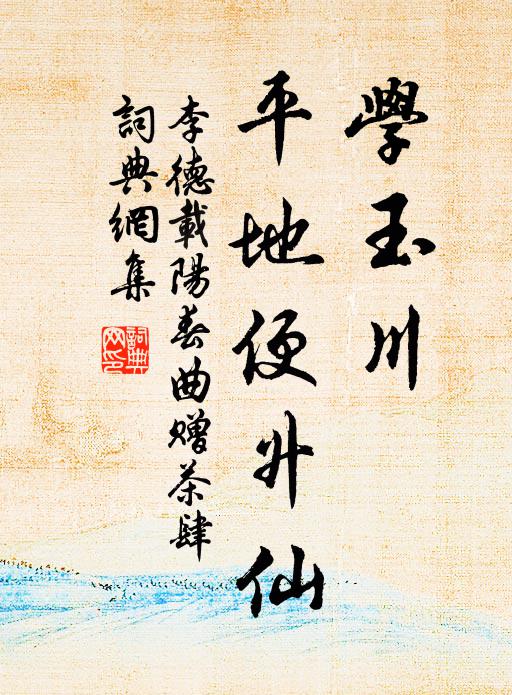 學玉川
平地便升仙
李德載陽春曲贈茶肆
詞典網集
詞典網印